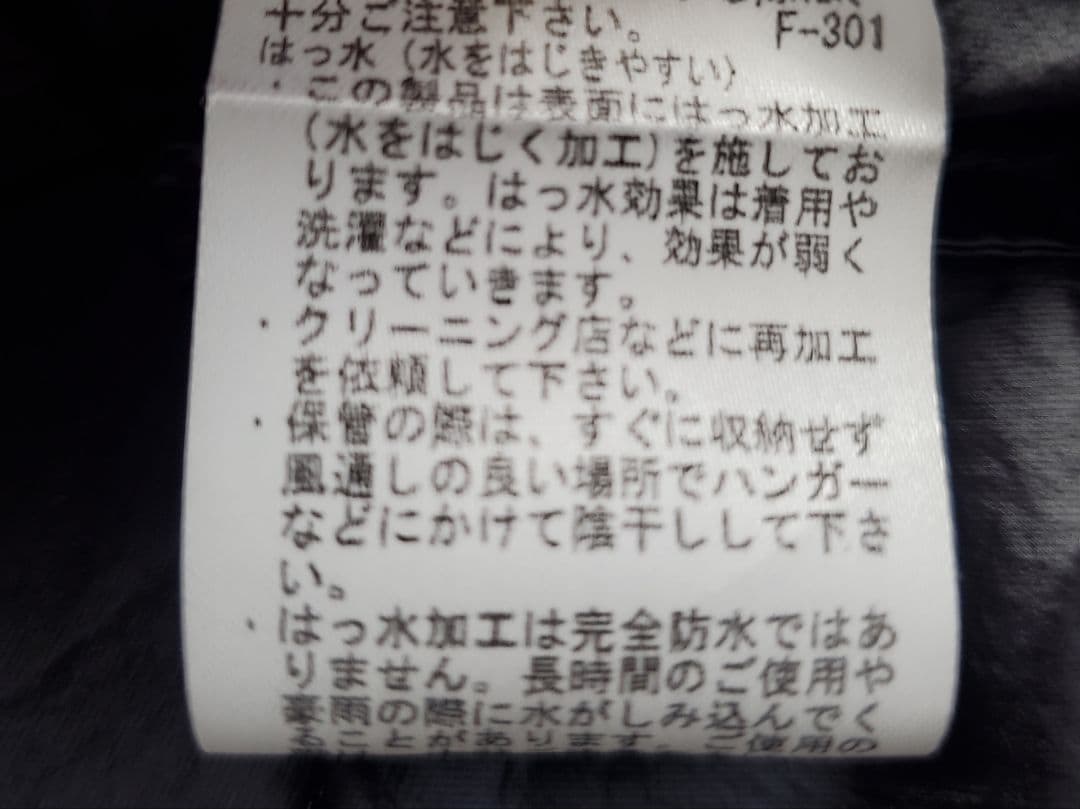 十分ご注意下さい。 F-301
はっ水（水をはじきやすい）
・この製品は表面にはっ水加工
（水をはじく加工）を施してお
ります。はっ水効果は着用や
洗濯などにより、効果が弱く
なっていきます。
・クリーニング店などに再加工
を依頼して下さい。
・保管の際は、すぐに収納せず
風通しの良い場所でハンガー
などにかけて陰干しして下さ
い。
・はっ水加工は完全防水ではあ
りません。長時間のご使用や
豪雨の際に水がしみ込んでく
ることがあります。ご使用の